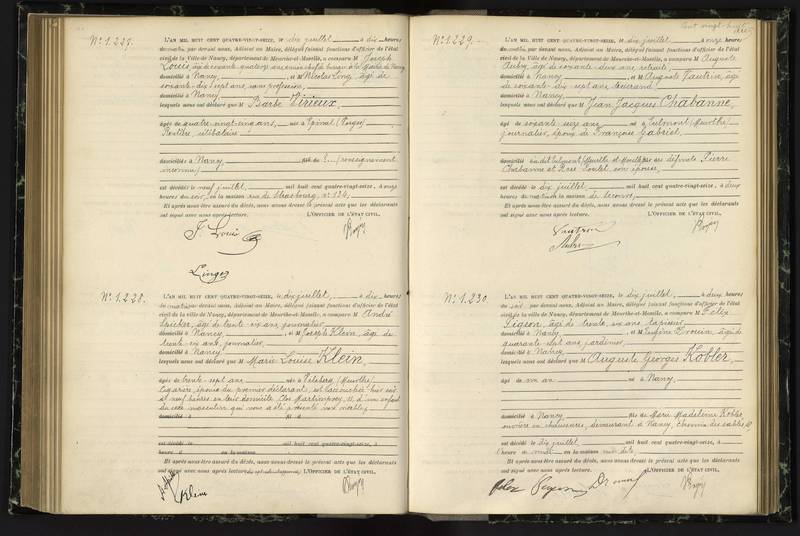 Nº 1.227.
L'AN MIL HUIT CENT QUATRE-VINGT-SEIZE, le dix juillet, à dix heures
du matin, par devant nous, Adjoint au Maire, délégué faisant fonctions d'officier de l'état
civil de la Ville de Nancy, département de Meurthe-et-Moselle, a comparu M Joseph
Louis, âgé de soixante-quatorze ans, ancien chef de bureau à la
domicilié à Nancy, et M Nicolas Linge, âgé de
soixante-dix-sept ans, sans profession,
domicilié à Nancy
lesquels nous ont déclaré que M Barbe Pirieux,
âgée de quatre-vingt-cinq ans, née à Epinal (Vosges)
Rentière, célibataire
domiciliée à Nancy, fille de (renseignement
inconnu)
est décédée le neuf juillet, mil huit cent quatre-vingt-seize, à onze
heures du soir, en la maison rue de Strasbourg, nº 134,
Et après nous être assuré du décès, nous avons dressé le présent acte que les déclarants
ont signé avec nous après lecture. L'OFFICIER DE L'ÉTAT CIVIL,
J. Louis
Linge
Nº 1.228.
L'AN MIL HUIT CENT QUATRE-VINGT-SEIZE, le dix juillet, à dix heures
du matin, par devant nous, Adjoint au Maire, délégué faisant fonctions d'officier de l'état
civil de la Ville de Nancy, département de Meurthe-et-Moselle, a comparu M André
âgé de trente-six ans, journalier,
domicilié à Nancy, et M Joseph Klein, âgé de
trente-six ans, journalier,
domicilié à Nancy
lesquels nous ont déclaré que M Marie Louise Klein,
âgée de trente-sept ans née à (Meurthe)
Cigarière, épouse du premier déclarant, est accouchée hier soir
à neuf heures en leur domicile, Clos Martimprey, 11, d'un enfant
du sexe masculin qui nous a été présenté non viable,
domicilié à fil d
est décédé le mil huit cent quatre-vingt-seize, à
heures d en la maison
Et après nous être assuré du décès, nous avons dressé le présent acte que les déclarants
ont signé avec nous après lecture. L'OFFICIER DE L'ÉTAT CIVIL,
Klein
Cent vingt-huit
Nº 1.229.
L'AN MIL HUIT CENT QUATRE-VINGT-SEIZE, le dix juillet, à onze heures
du matin, par devant nous, Adjoint au Maire, délégué faisant fonctions d'officier de l'état
civil de la Ville de Nancy, département de Meurthe-et-Moselle, a comparu M Auguste
Aubry, âgé de soixante-deux ans, retraité,
domicilié à Nancy, et M Auguste Vautrin, âgé
de soixante-dix-sept ans,
domicilié à Nancy
lesquels nous ont déclaré que M Jean Jacques Chabanne,
âgé de soixante-seize ans né à Pulmont (Meurthe)
journalier, époux de Françoise Gabriel,
domicilié (Meurthe et Moselle) fils des défunts Pierre
Chabanne et Rose son épouse,
est décédé le dix juillet, mil huit cent quatre-vingt-seize, à deux
heures du matin en la maison de secours,
Et après nous être assuré du décès, nous avons dressé le présent acte que les déclarants
ont signé avec nous après lecture. L'OFFICIER DE L'ÉTAT CIVIL,
Vautrin
Aubry
Nº 1.230.
L'AN MIL HUIT CENT QUATRE-VINGT-SEIZE, le dix juillet, à deux heures
du soir, par devant nous, Adjoint au Maire, délégué faisant fonctions d'officier de l'état
civil de la Ville de Nancy, département de Meurthe-et-Moselle, a comparu M Félix
Pigeon, âgé de trente-six ans, tapissier,
domicilié à Nancy, et M Eugène Drouin, âgé de
quarante-sept ans, jardinier,
domicilié à Nancy
lesquels nous ont déclaré que M Auguste Georges Kobler,
âgé de un an né à Nancy,
domicilié à Nancy, fils de Marie Madeleine Kobler,
ouvrière en chaussures, demeurant à Nancy, chemin des sables
est décédé le dix juillet, mil huit cent quatre-vingt-seize, à
heure en la maison
Et après nous être assuré du décès, nous avons dressé le présent acte que les déclarants
ont signé avec nous après lecture. L'OFFICIER DE L'ÉTAT CIVIL,
Félix Pigeon Drouin